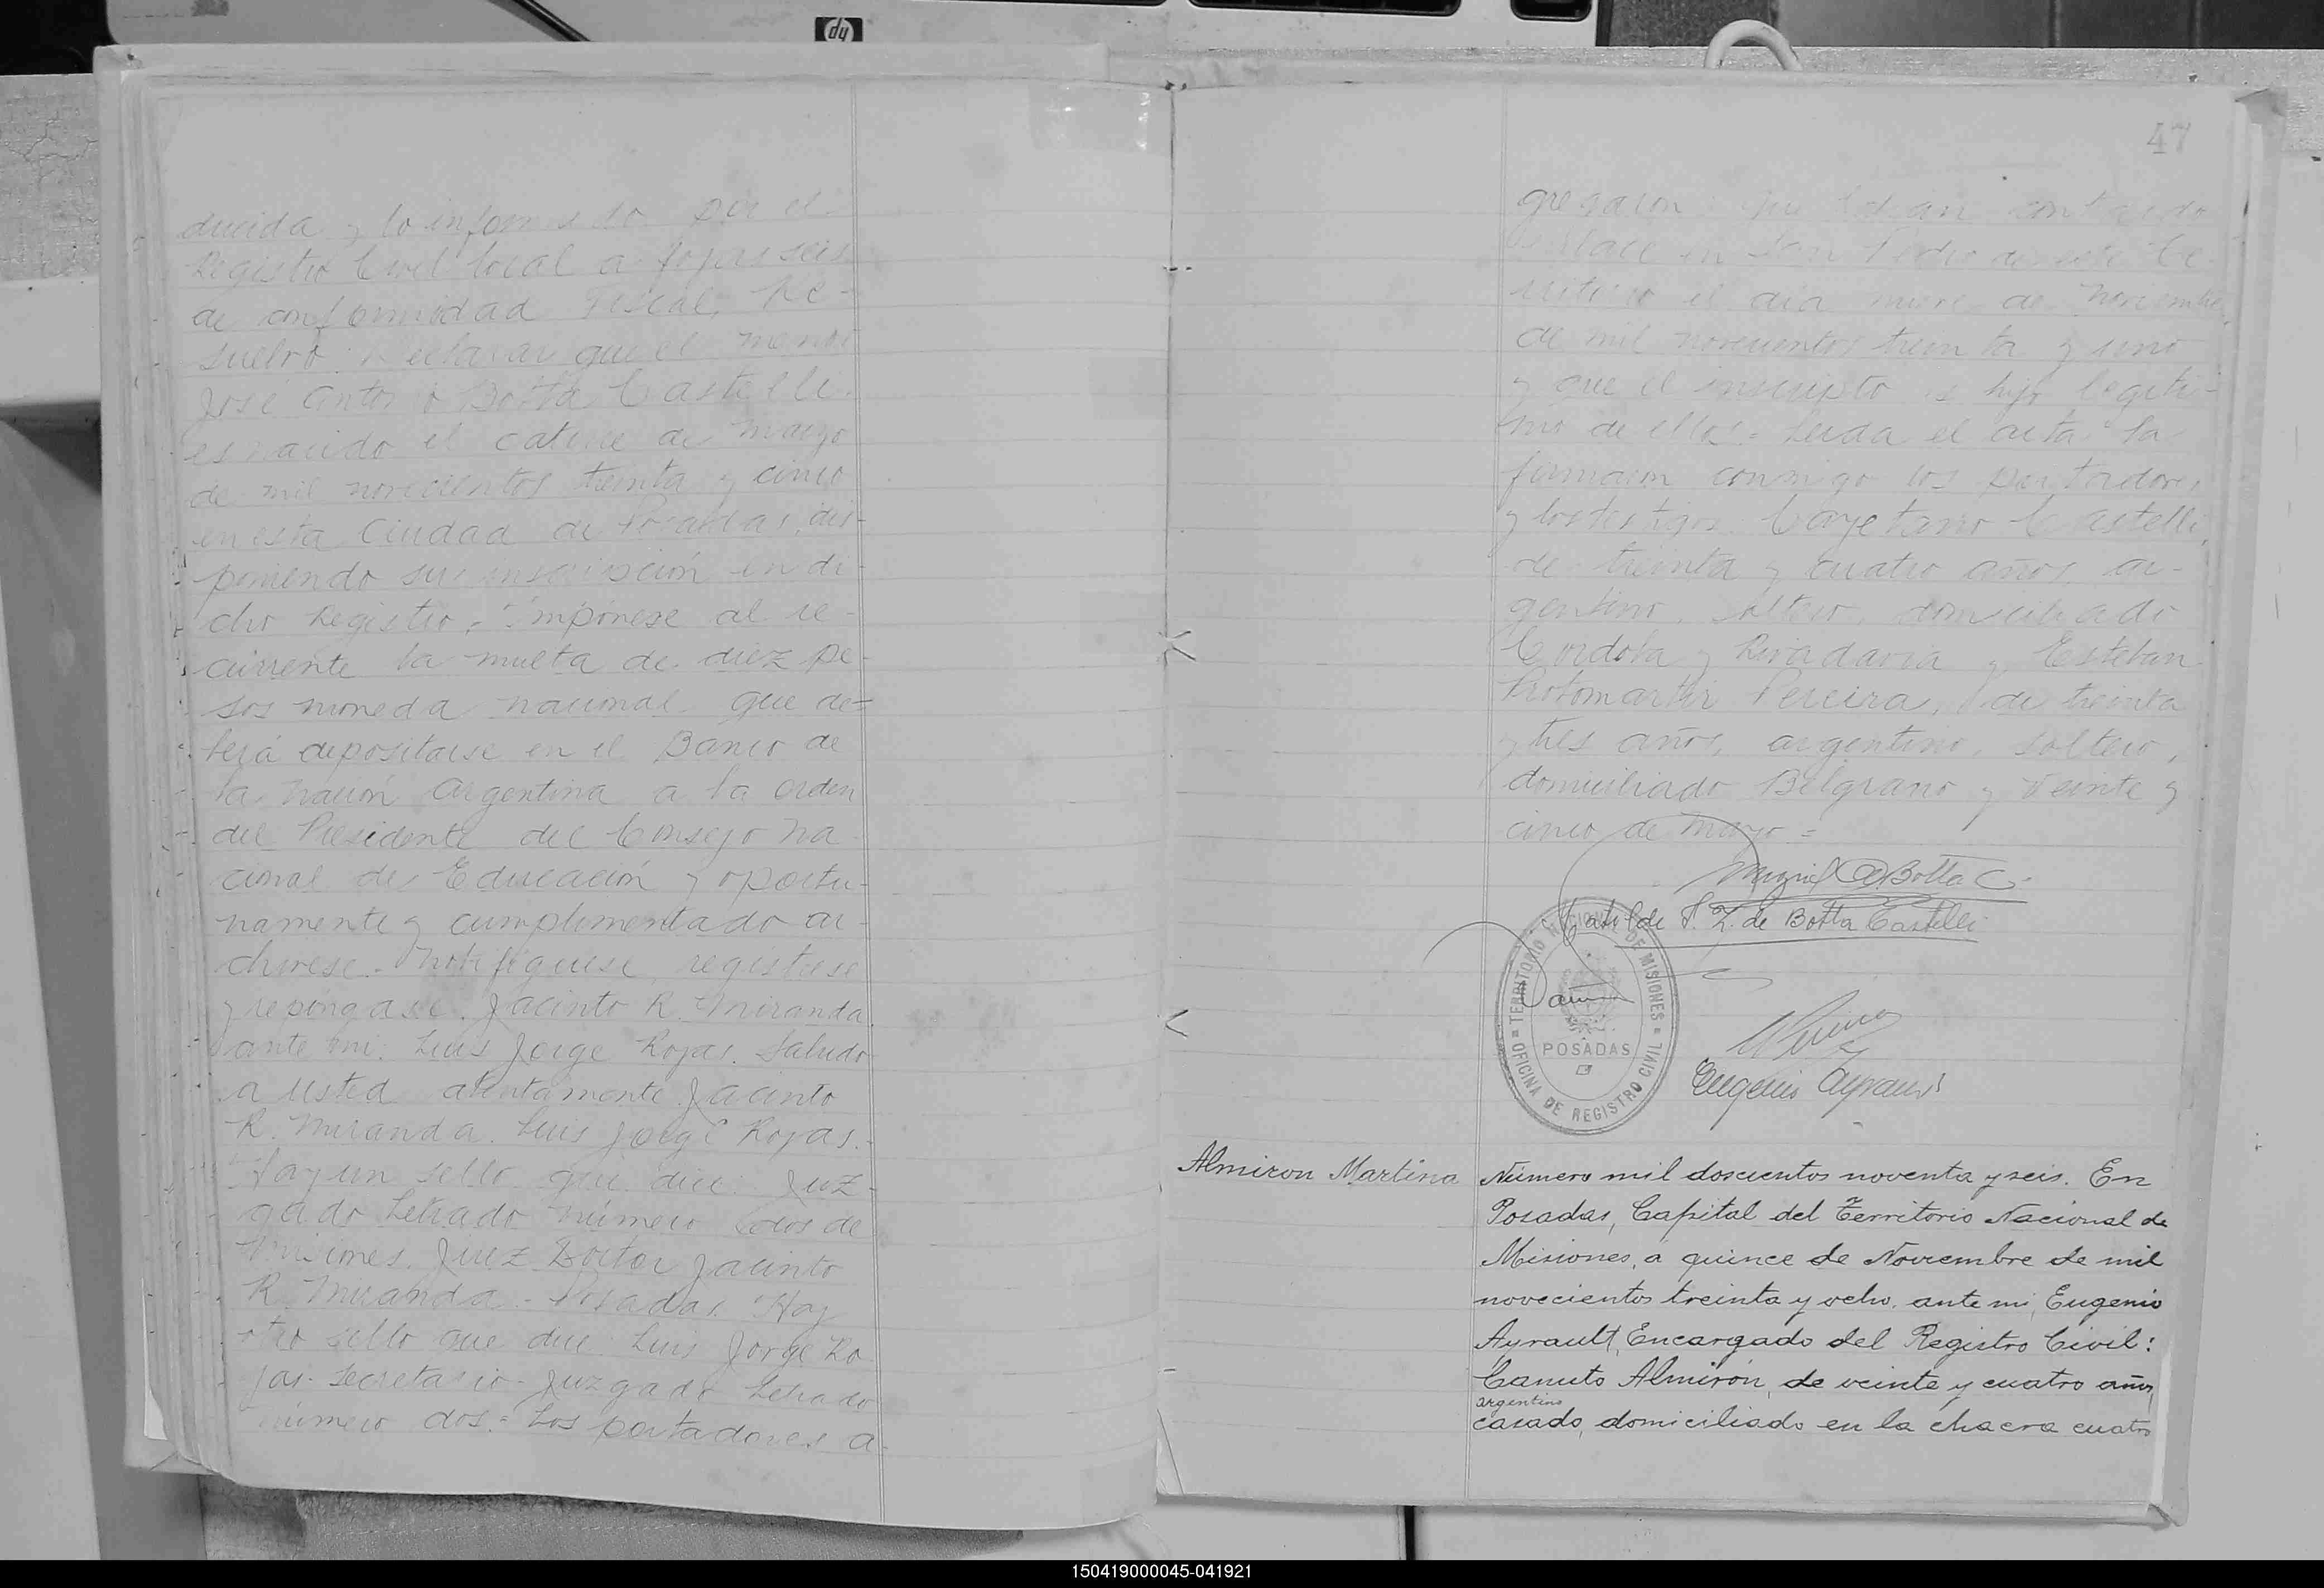 hp
ducida y lo informado por el
Registro Civil local a fojas seis
de conformidad Fiscal, Re-
suelvo: Declarar que el menor
José Antonio Botta Castelli
es nacido el catorce de marzo
de mil novecientos treinta y cinco
en esta Ciudad de Posadas, dis-
poniendo su inscripción en di-
cho Registro. Impónese al re-
currente la multa de diez pe-
sos moneda nacional que de-
berá depositarse en el Banco de
la Nación Argentina a la orden
del Presidente del Consejo Na-
cional de Educación y oportu-
namente y cumplimentado ar-
chívese. Notifíquese, regístrese
y repóngase. Jacinto R. Miranda
ante mi: Luis Jorge Rojas. Saludo
a Usted atentamente Jacinto
R. Miranda. Luis Jorge Rojas.-
Hay un sello que dice: Juz-
gado Letrado número dos de
Misiones. Juez Doctor Jacinto
R. Miranda - Posadas. Hay
otro sello que dice Luis Jorge Ro-
jas. Secretario. Juzgado Letrado
número dos.= Los portadores a-
47
gregaron: Que han contraído
enlace en San Pedro de este Te-
rritorio el día nueve de noviembre
de mil novecientos treinta y uno
y que el inscripto es hijo legíti-
mo de ellos.= Leída el acta la
firmaron conmigo los portadores
y los testigos: Cayetano Castelli,
de treinta y cuatro años, ar-
gentino, soltero, domiciliado
Córdoba y Rivadavia y Esteban
Protomartir Pereira, de treinta
y tres años, argentino, soltero,
domiciliado Belgrano y Veinte y
cinco de Mayo =
Miguel A Botta C.
Matilde S. Z. de Botta Castelli
TERRITORIO NACIONAL DE MISIONES
POSADAS
OFICINA DE REGISTRO CIVIL
Eugenio Ayrault
Almiron Martina
Número mil doscientos noventa y seis. En
Posadas, Capital del Territorio Nacional de
Misiones, a quince de Noviembre de mil
novecientos treinta y ocho, ante mi, Eugenio
Ayrault, Encargado del Registro Civil:
Canuto Almirón, de veinte y cuatro años,
argentino
casado, domiciliado en la chacra cuatro
150419000045-041921